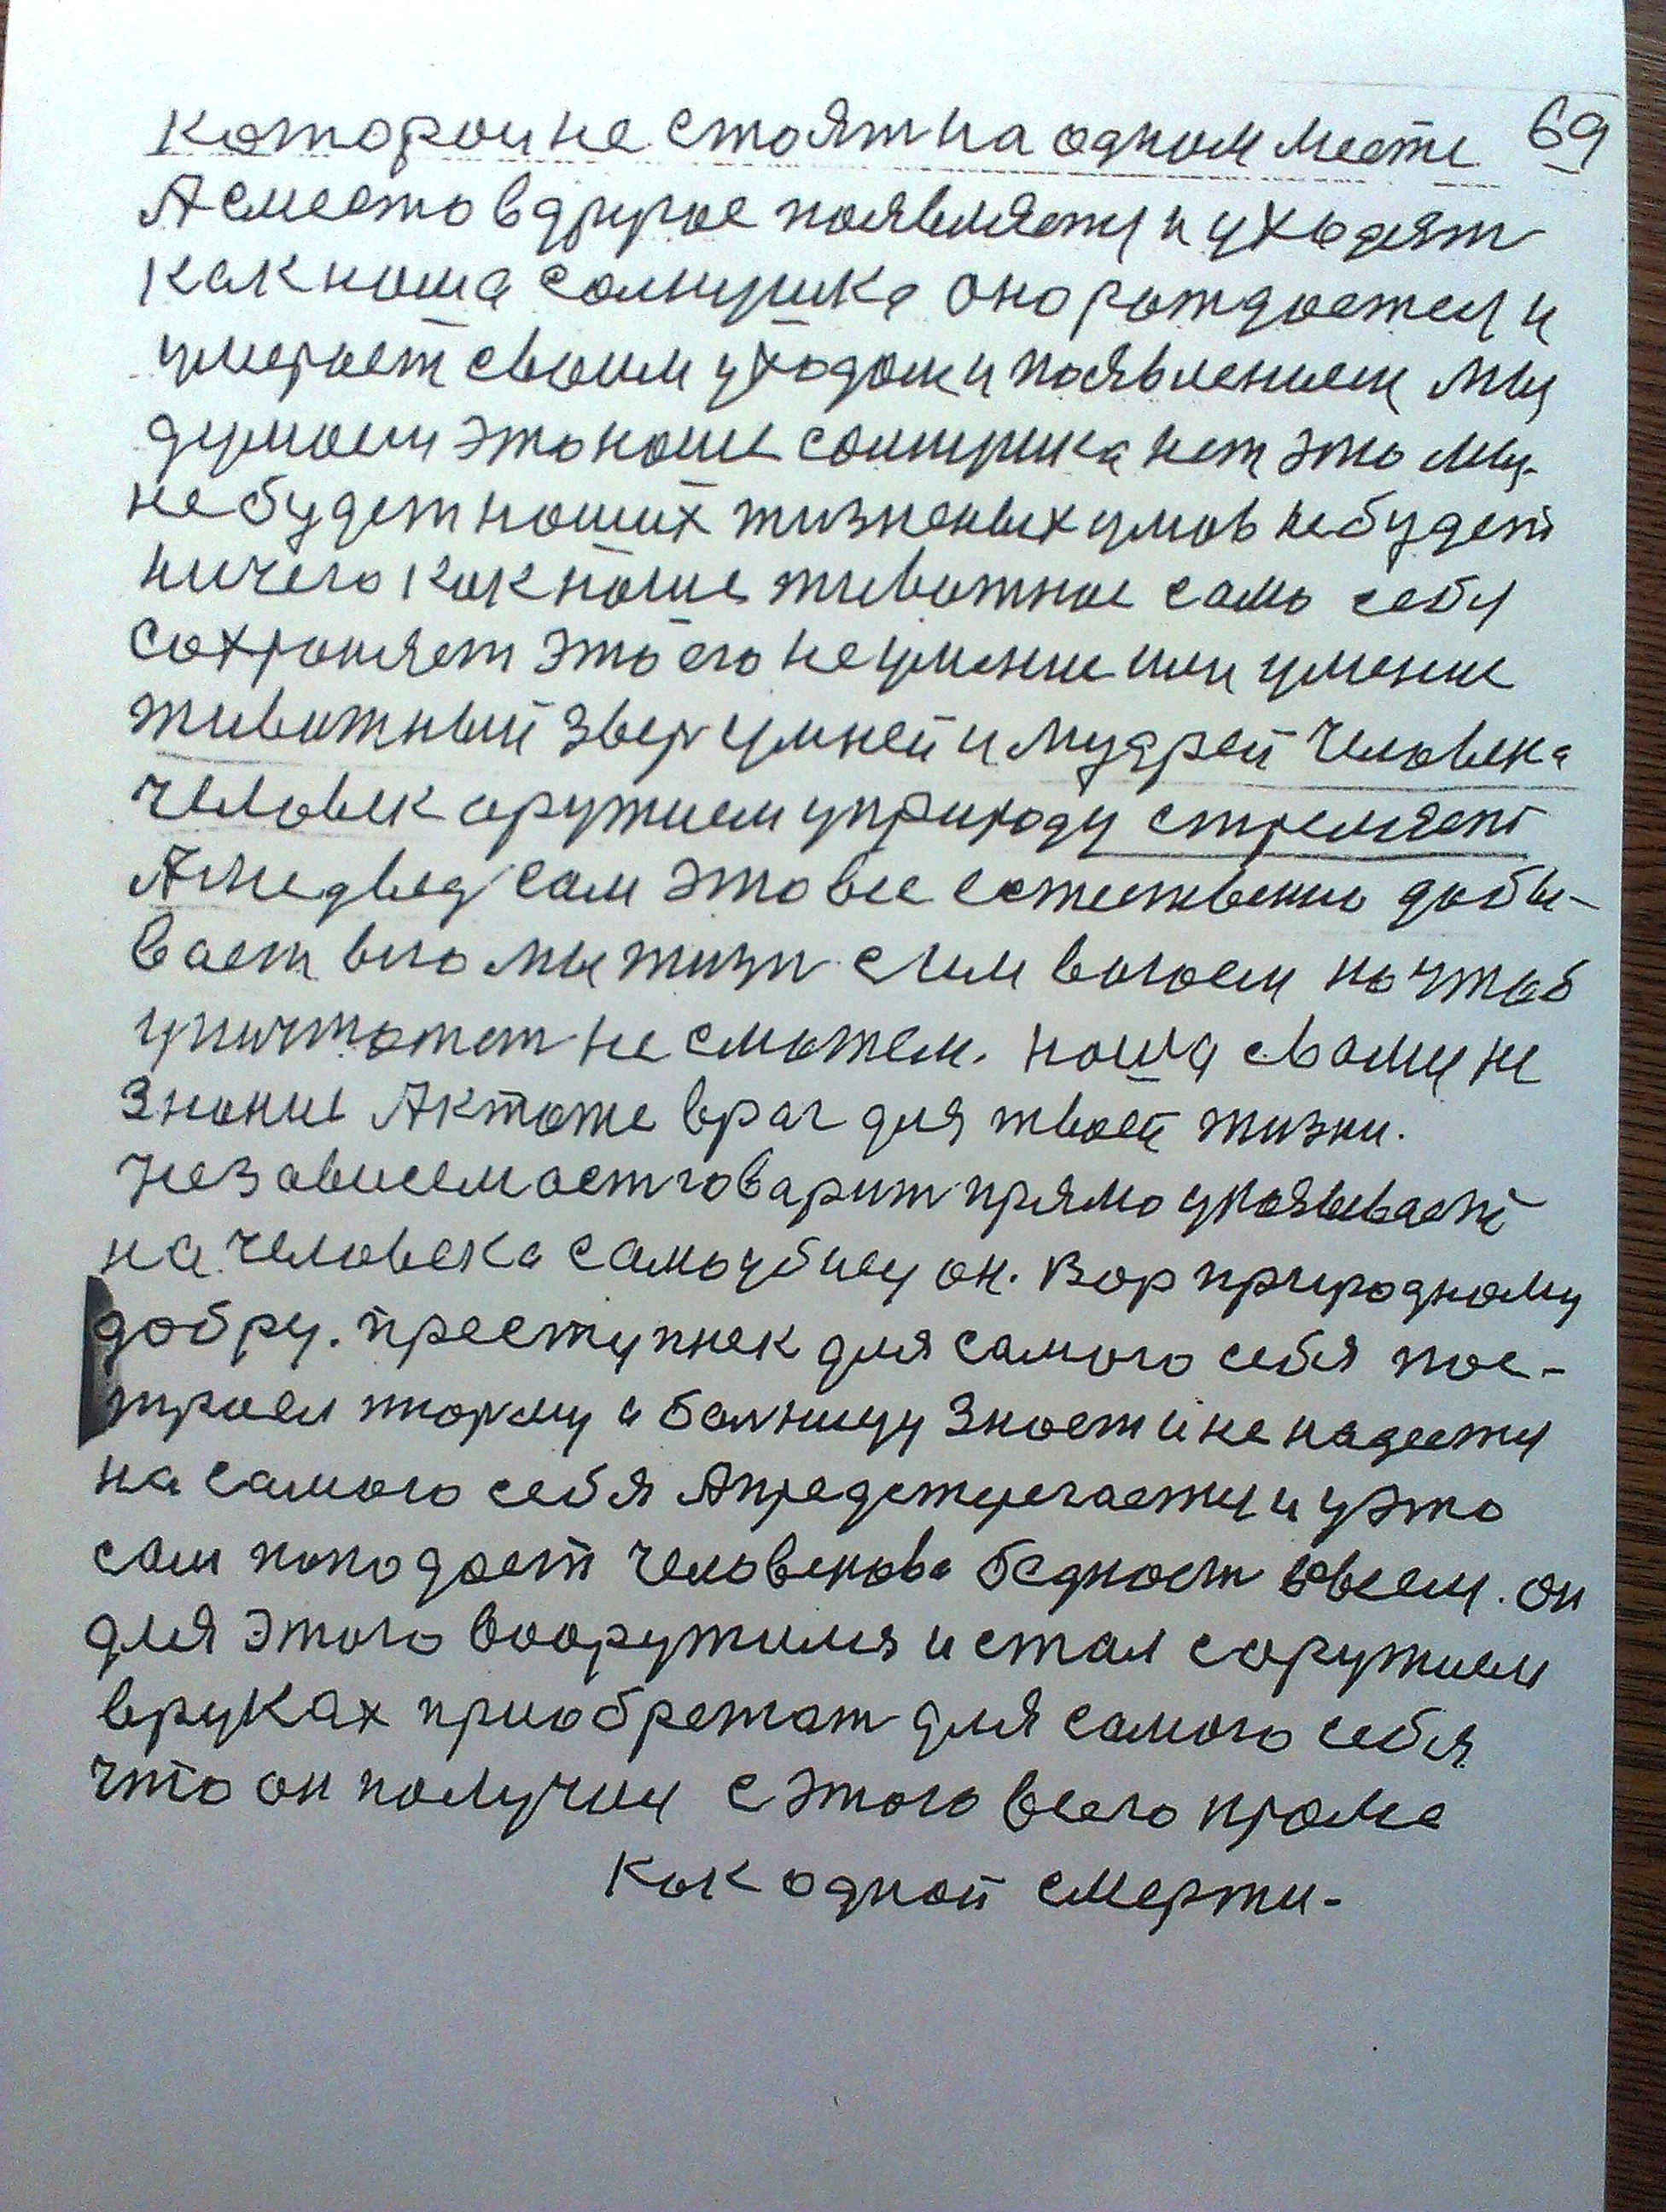 которои не стоят на одном месте 69
А сместо в другое появляетц и уходят
как наша солнушка оно рождается и
умерает своим уходом и появлением мы
думаем это наше солнушка нет это мы.
не будет наших жизненых умов не будет
ничего как наше животное само себя
сохроняет это его не умение или умение
животный звер умней и мудрей человека
человек оружием у природу стреляет
А медвед сам это все естественно добы-
вает вего мы жизн с ним воюем но чтоб
уничтожет не сможем. наша свами не
знание А ктоже враг для твоей жизни.
Независемаст говарит прямо указывает
на человека самоубицу он. Вор природному
добру. преступнек для самого себя пос-
троел тюрму и болницу знает и не надеетц
на самого себя А предстерегаетц и у это
сам пападает человекова бедност вовсем. он
для этого вооружился и стал соружием
вруках приобретат для самого себя
что он получил с этого всего кроме
как одной смерти-